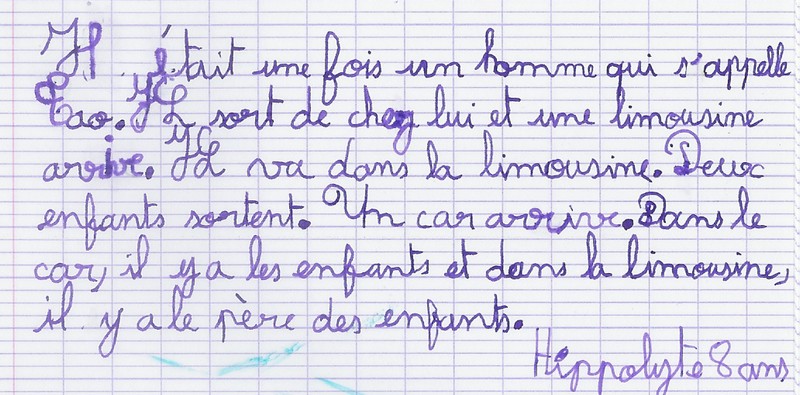 Il était une fois un homme qui s'appelle
Tao. Il sort de chez lui et une limousine
arrive. Il va dans la limousine. Deux
enfants sortent. Un car arrive. Dans le
car, il y a les enfants et dans la limousine,
il y a le père des enfants.
Hippolyte 8 ans